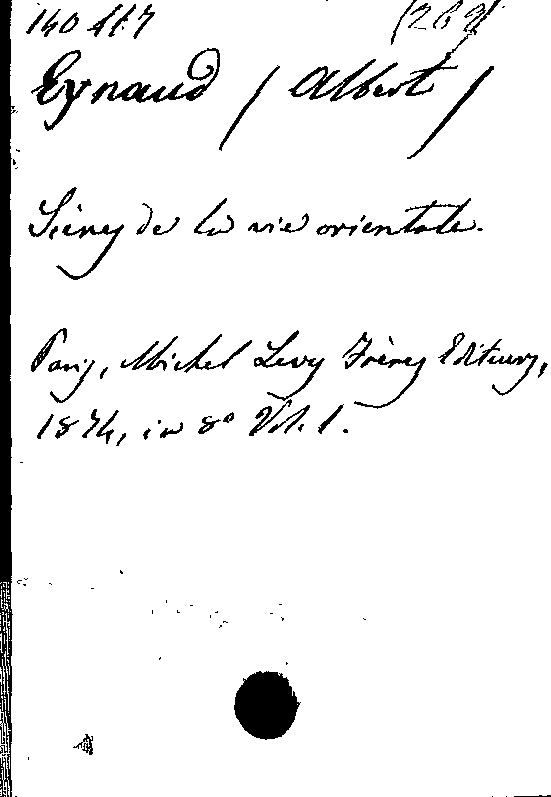 140 417
Eynaud / Albert /
Scènes de la vie orientale.
Paris, Michel Levy Frères Editeurs,
1874, in 8° Vol. 1.